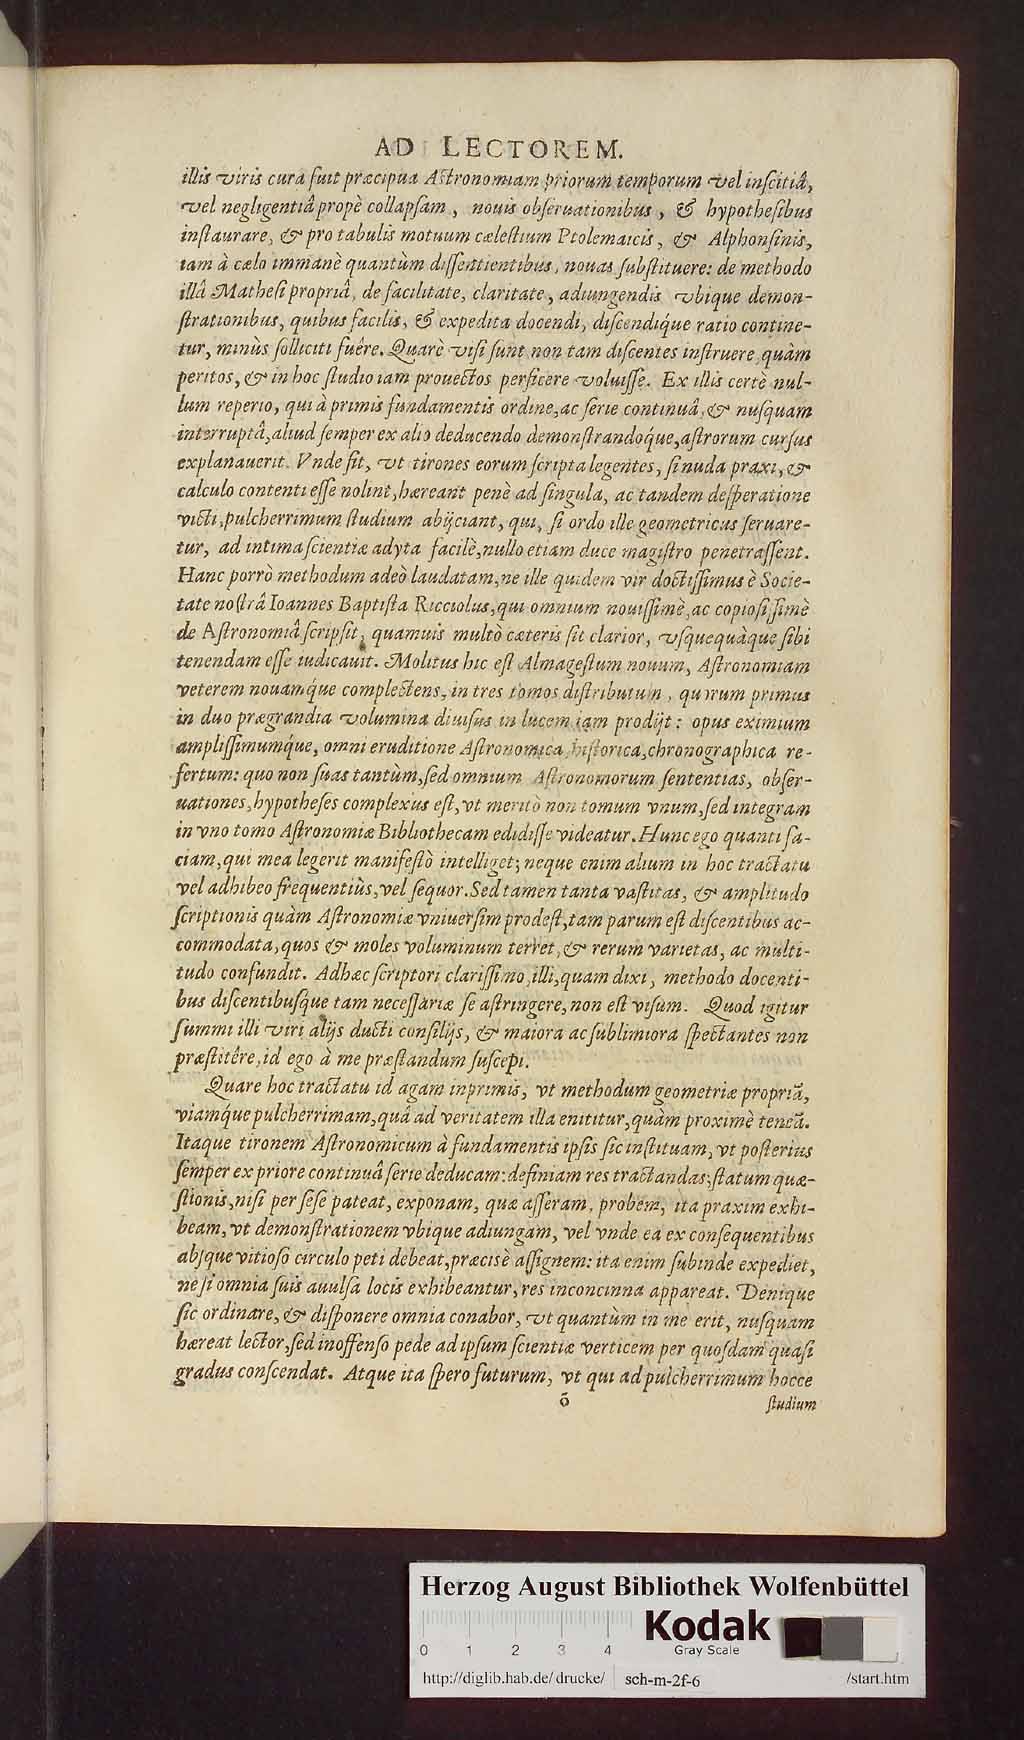 AD LECTOREM.
illis viris cura fuit præcipua Astronomiam priorum temporum vel inscitiâ,
vel negligentiâ propè collapsam, nouis obseruationibus, & hypothesibus
instaurare, & pro tabulis motuum cælestium Ptolemaicis, & Alphonsinis,
iam à cælo immanè quantùm dissentientibus, nouas substituere: de methodo
illâ Mathesi propriâ, de facilitate, claritate, adiungendis vbique demon-
strationibus, quibus facilis, & expedita docendi, discendiq́ue ratio contine-
tur, minùs solliciti fuêre. Quarè visi sunt non tam discentes instruere quàm
peritos, & in hoc studio iam prouectos perficere voluisse. Ex illis certè nul-
lum reperio, qui à primis fundamentis ordine, ac serie continuâ, & nusquam
interruptâ, aliud semper ex alio deducendo demonstrandoq́ue, astrorum cursus
explanauerit. Vnde fit, vt tirones eorum scripta legentes, si nuda praxi, &
calculo contenti esse nolint, hæreant penè ad singula, ac tandem desperatione
victi, pulcherrimum studium abijciant, qui, si ordo ille geometricus seruare-
tur, ad intima scientiæ adyta facilè, nullo etiam duce magistro penetrassent.
Hanc porrò methodum adeò laudatam, ne ille quidem vir doctissimus è Socie-
tate nostrâ Ioannes Baptista Ricciolus, qui omnium nouissimè, ac copiosissimè
de Astronomiâ scripsit, quamuis multò cæteris sit clarior, vsquequàque sibi
tenendam esse iudicauit. Molitus hic est Almagestum nouum, Astronomiam
veterem nouamq́ue complectens, in tres tomos distributum, quorum primus
in duo prægrandia volumina diuisus in lucem iam prodijt: opus eximium
amplissimumq́ue, omni eruditione Astronomica, historica, chronographica re-
fertum: quo non suas tantùm, sed omnium Astronomorum sententias, obser-
uationes, hypotheses complexus est, vt meritò non tomum vnum, sed integram
in vno tomo Astronomiæ Bibliothecam edidisse videatur. Hunc ego quanti fa-
ciam, qui mea legerit manifestò intelliget; neque enim alium in hoc tractatu
vel adhibeo frequentiùs, vel sequor. Sed tamen tanta vastitas, & amplitudo
scriptionis quàm Astronomiæ vniuersim prodest, tam parum est discentibus ac-
commodata, quos & moles voluminum terret, & rerum varietas, ac multi-
tudo confundit. Adhæc scriptori clarissimo, illi, quam dixi, methodo docenti-
bus discentibusque tam necessariæ se astringere, non est visum. Quod igitur
summi illi viri alijs ducti consilijs, & maiora ac sublimiora spectantes non
præstitêre, id ego à me præstandum suscepi.
Quare hoc tractatu id agam inprimis, vt methodum geometriæ propriã,
viamq́ue pulcherrimam, quâ ad veritatem illa enititur, quàm proximè teneã.
Itaque tironem Astronomicum à fundamentis ipsis sic instituam, vt posterius
semper ex priore continuâ serie deducam: definiam res tractandas; statum quæ-
stionis, nisi per sese pateat, exponam, quæ asseram, probem, ita praxim exhi-
beam, vt demonstrationem vbique adiungam, vel vnde ea ex consequentibus
absque vitioso circulo peti debeat, præcisè assignem: ita enim subinde expediet,
ne si omnia suis auulsa locis exhibeantur, res inconcinna appareat. Denique
sic ordinare, & disponere omnia conabor, vt quantùm in me erit, nusquam
hæreat lector, sed inoffenso pede ad ipsum scientiæ verticem per quosdam quasi
gradus conscendat. Atque ita spero futurum, vt qui ad pulcherrimum hocce
õ
studium
Herzog August Bibliothek Wolfenbüttel
0 1 2 3 4
Kodak
Gray Scale
http://diglib.hab.de/drucke/ sch-m-2f-6 /start.htm